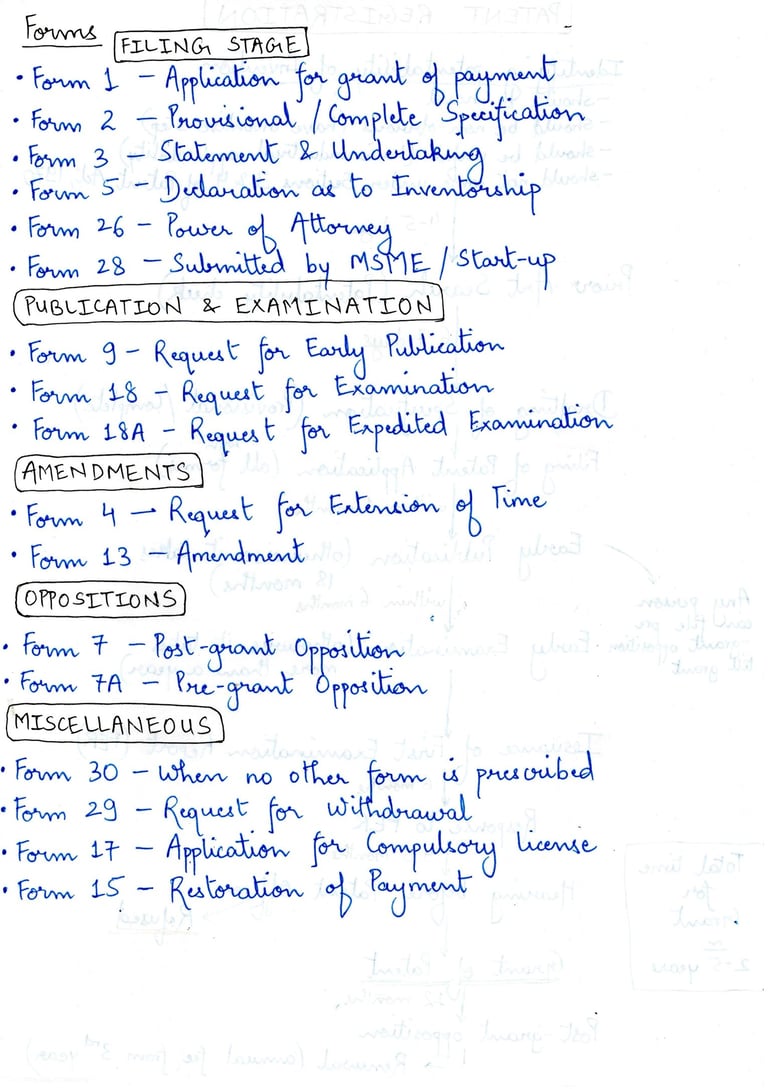 Forms
FILING STAGE
• Form 1 – Application for grant of payment
• Form 2 – Provisional / Complete Specification
• Form 3 – Statement & Undertaking
• Form 5 – Declaration as to Inventorship
• Form 26 – Power of Attorney
• Form 28 – Submitted by MSME / Start-up
PUBLICATION & EXAMINATION
• Form 9 – Request for Early Publication
• Form 18 – Request for Examination
• Form 18A – Request for Expedited Examination
AMENDMENTS
• Form 4 – Request for Extension of Time
• Form 13 – Amendment
OPPOSITIONS
• Form 7 – Post-grant Opposition
• Form 7A – Pre-grant Opposition
MISCELLANEOUS
• Form 30 – When no other form is prescribed
• Form 29 – Request for Withdrawal
• Form 17 – Application for Compulsory License
• Form 15 – Restoration of Payment